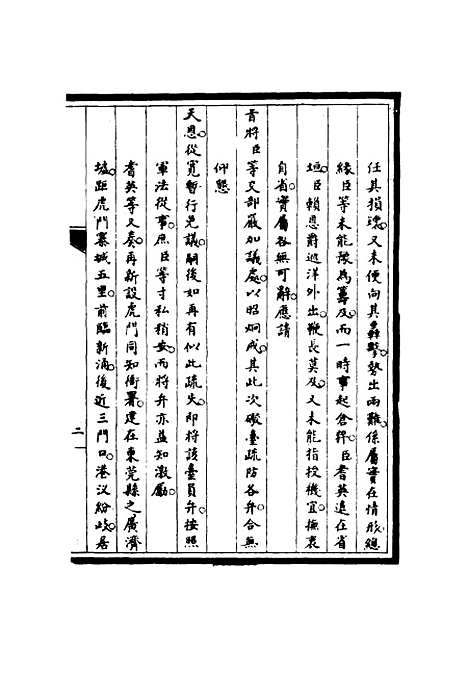 任其損壞又未便向其轟擊勢出兩難係屬實在情形總
緣臣等未能豫為籌及而一時事起倉猝臣耆英遠在省
垣臣賴恩爵巡洋外出鞭長莫及又未能指授機宜撫衷
自省實屬咎無可辭應請
旨將臣等交部嚴加議處以昭炯戒其此次礮臺疏防各弁合無
仰懇
天恩從寬暫行免議嗣後如再有似此疏失即將該臺員弁按照
軍法從事庶臣等寸私稍安而將弁亦益知激勵
耆英等又奏再新設虎門同知衙署建在東莞縣之廣濟
墟距虎門寨城五里前臨新涌後近三門口港汊紛歧居
二